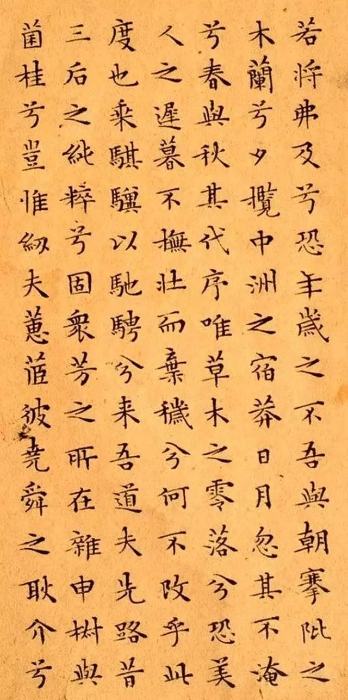 若將弗及兮恐年歲之不吾與朝搴阰之
木蘭兮夕攬中洲之宿莽日月忽其不淹
兮春與秋其代序唯草木之零落兮恐美
人之遲暮不撫壯而棄穢兮何不改乎此
度也乘騏驥以馳騁兮来吾道夫先路昔
三后之純粹兮固衆芳之所在雜申椒與
菌桂兮豈惟紉夫蕙茝彼堯舜之耿介兮